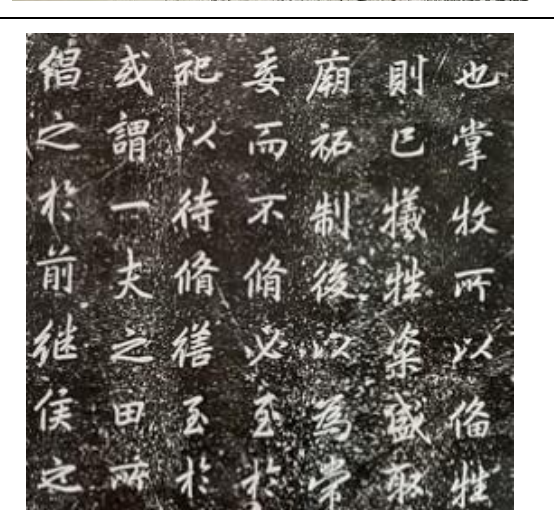 也掌牧所以備牲
則已犧牲粢盛取
廟祏制後以為常
委而不脩必至於
祀以待脩繕至於
或謂一夫之田所
倡之於前继侯之